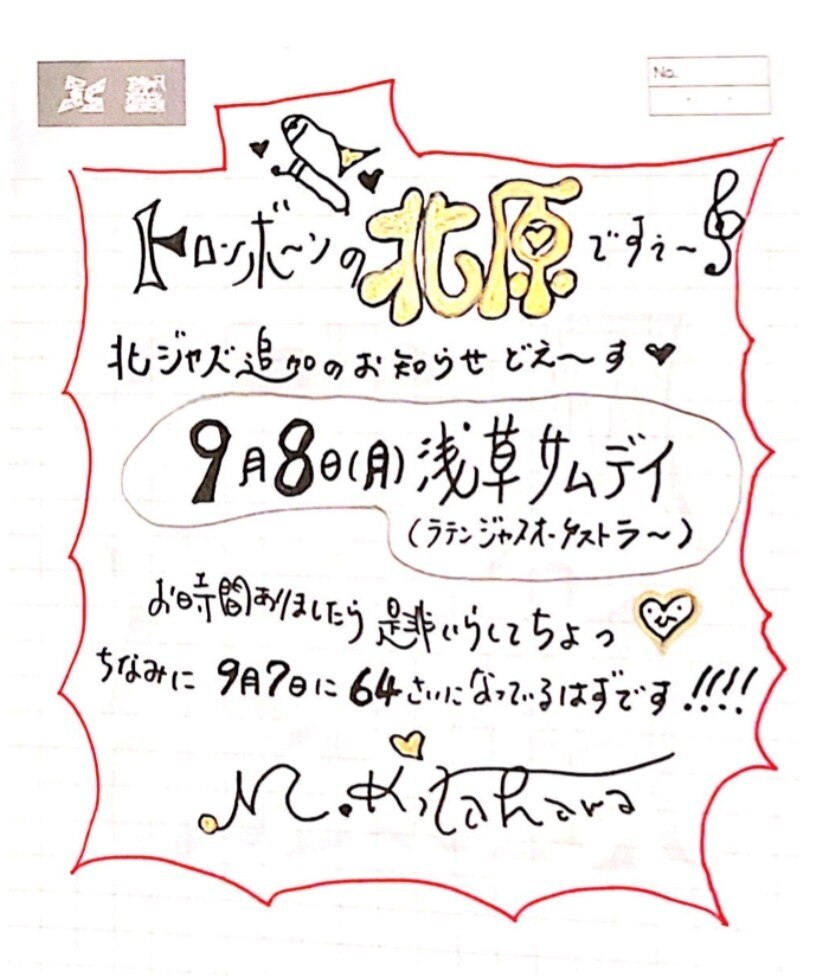 No.
トロンボ〜ンの北原ですぅ〜
北ジャズ追加のお知らせどえ〜す
9月8日(月)浅草サムデイ
(ラテンジャズオーケストラ〜)
お時間ありましたら是非いらしてちょっ
ちなみに9月7日に64さいになっているはずです!!!!
M.Kitahara